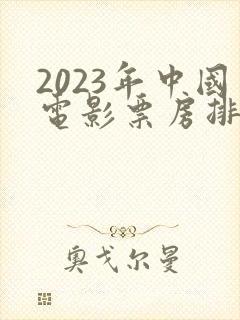 2023年中国
电影票房排
奥戈尔曼